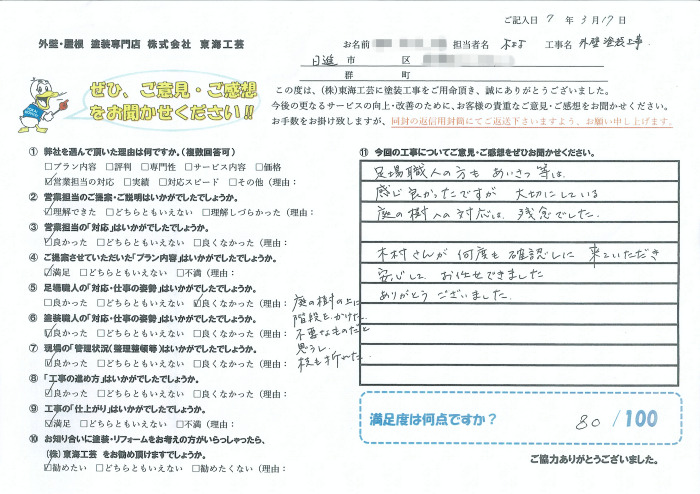 ご記入日 7 年 3月17日
外壁・屋根 塗装専門店 株式会社 東海工芸
お名前 担当者名 工事名 外壁塗装工事
日進 市 区
群 町
ぜひ、ご意見・ご感想
をお聞かせください!!
この度は、(株)東海工芸に塗装工事をご用命頂き、誠にありがとうございました。
今後の更なるサービスの向上・改善のために、お客様の貴重なご意見・ご感想をお聞かせください。
お手数をお掛け致しますが、同封の返信用封筒にてご返送下さいますよう、お願い申し上げます。
① 弊社を選んで頂いた理由は何ですか。(複数回答可)
□プラン内容 □評判 □専門性 □サービス内容 □価格
☑営業担当の対応 □実績 □対応スピード □その他(理由:
② 営業担当のご提案・ご説明はいかがでしたでしょうか。
☑理解できた □どちらともいえない □理解しづらかった(理由:
③ 営業担当の「対応」はいかがでしたでしょうか。
☑良かった □どちらともいえない □良くなかった(理由:
④ ご提案させていただいた「プラン内容」はいかがでしたでしょうか。
☑満足 □どちらともいえない □不満(理由:
⑤ 足場職人の「対応・仕事の姿勢」はいかがでしたでしょうか。
□良かった □どちらともいえない ☑良くなかった(理由: 庭の樹の上に
階段をかけた。
不要なものだと
思うし、
枝も折れた。
⑥ 塗装職人の「対応・仕事の姿勢」はいかがでしたでしょうか。
☑良かった □どちらともいえない □良くなかった(理由:
⑦ 現場の「管理状況(整理整頓等)はいかがでしたでしょうか。
☑良かった □どちらともいえない □良くなかった(理由:
⑧ 「工事の進め方」はいかがでしたでしょうか。
☑良かった □どちらともいえない □良くなかった(理由:
⑨ 工事の「仕上がり」はいかがでしたでしょうか。
☑満足 □どちらともいえない □不満(理由:
⑩ お知り合いに塗装・リフォームをお考えの方がいらっしゃったら、
(株)東海工芸 をお勧め頂けますでしょうか。
☑勧めたい □どちらともいえない □勧めたくない(理由:
⑪ 今回の工事についてご意見・ご感想をぜひお聞かせください。
足場職人の方も あいさつ等は
感じ良かったですが 大切にしている
庭の樹への対応は、残念でした。
木村さんが 何度も確認しに 来ていただき
安心して お任せできました
ありがとう ございました。
満足度は何点ですか? 80 /100
ご協力ありがとうございました。